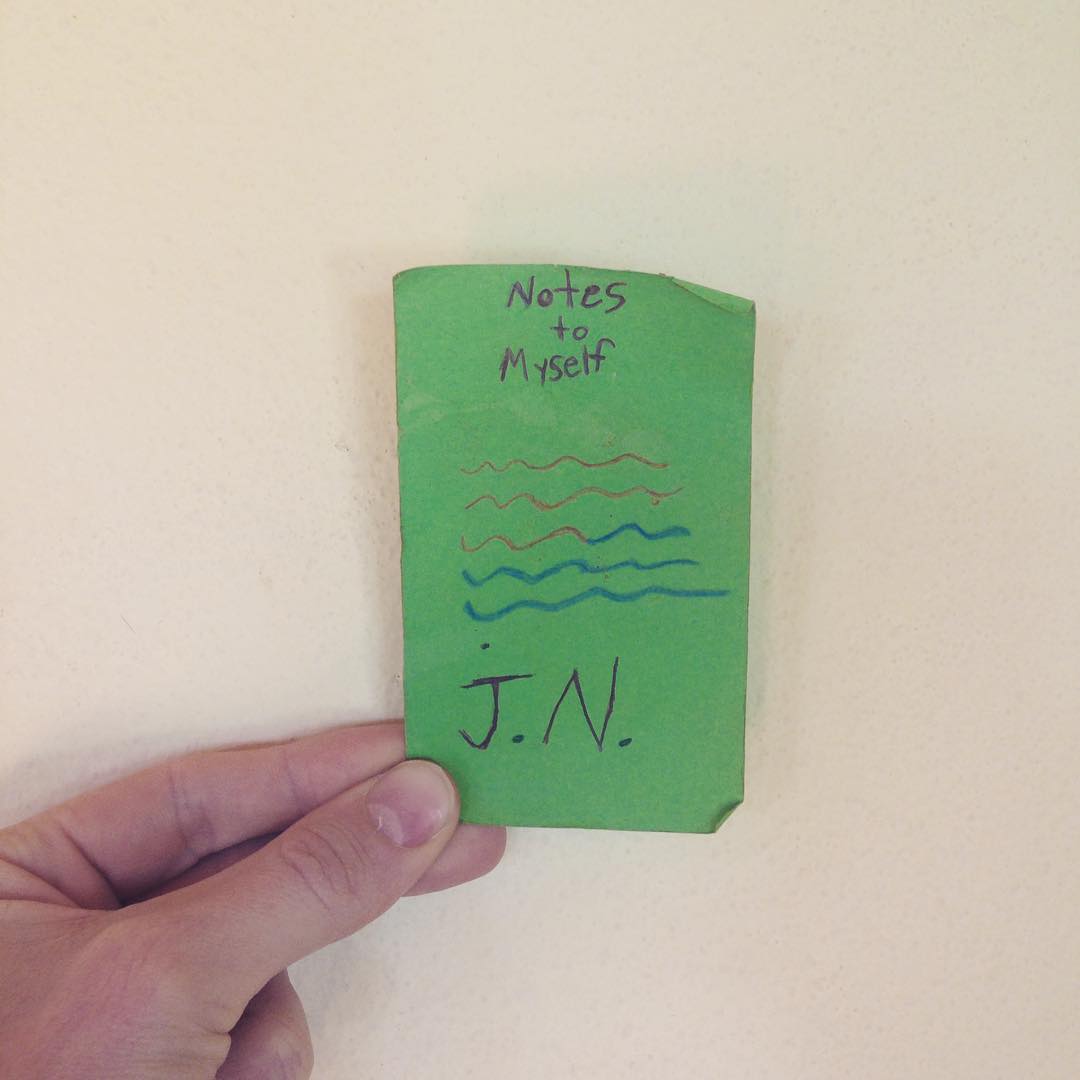 Notes
to
Myself
J.N.